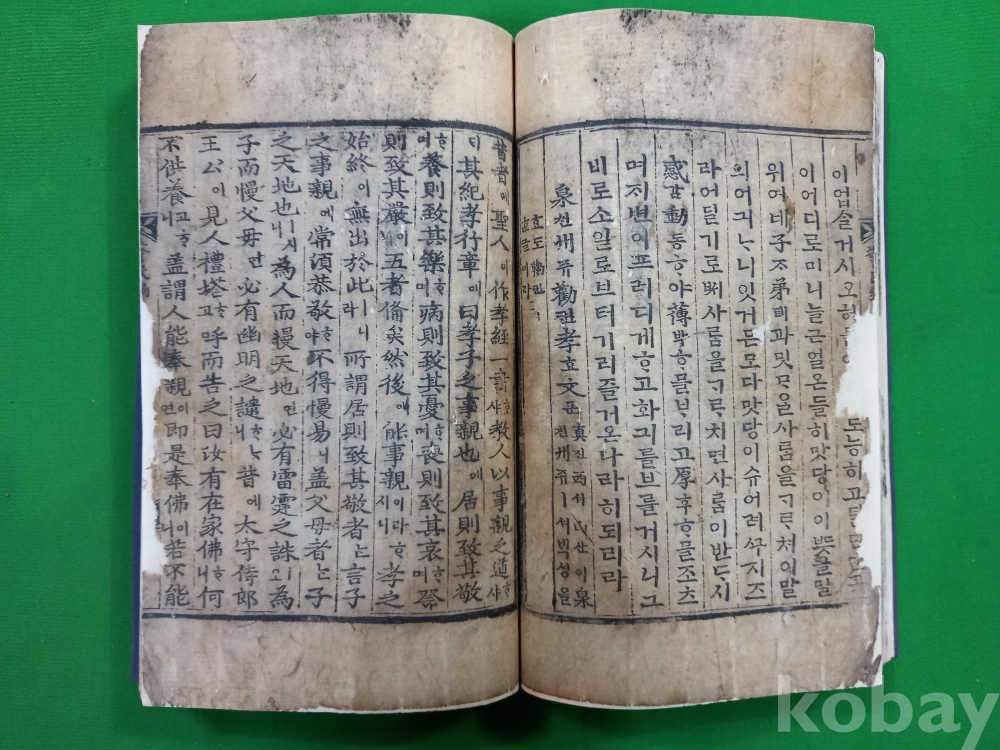 이업슬거시오
도능히고틸
이어디로미니늘근얼온들히맛당이이ᄠᅳᆺ을말
위여네子ᄌᆞ弟뎨과밋ᄆᆞᄋᆞᆯ사ᄅᆞᆷ을ᄀᆞᄅᆞ쳐이말
의어긔ᄂᆞ니잇거든모다맛당이슈어려ᄭᅮ지즈
라어딜기로ᄡᅥ사ᄅᆞᆷ을ᄀᆞᄅᆞ치면사ᄅᆞᆷ이반ᄃᆞ시
感감動동ᄒᆞ야薄박ᄒᆞᆫ믈ᄇᆞ리고厚후ᄒᆞᆫ믈조츠
며지변이프러디게ᄒᆞ고화긔를브를거시니그
비로소일로브터기러즐거온나라히되리라
泉쳔州쥬勸권孝효文문 眞진西셔山산이泉쳔州쥬ㅣ셔ᄇᆡᆨ셩을
효도勸권ᄒᆞᆫ글이라
昔者애聖人이作孝經一書ᄒᆞ샤敎人以事親之道ᄒᆞ샤
ᄃᆡ其紀孝行章애曰孝子之事親也애居則致其敬
ᄒᆞ며養則致其樂ᄒᆞ며病則致其憂ᄒᆞ며喪則致其哀ᄒᆞ며祭
則致其嚴이니五者備矣然後에能事親이라ᄒᆞ시니孝之
始終이無出於此ㅣ라니所謂居則致其敬者ᄂᆞᆫ言子
之事親에常須恭敬ᄒᆞ야不得慢易니盖父母者ᄂᆞᆫ子
之天地也ㅣ시니爲人而慢天地면必有雷霆之誅ㅣ오爲
子而慢父母면必有幽明之譴ᄒᆞ니昔에太守侍郎
王公이見人禮塔ᄒᆞ고呼而告之曰汝有在家佛ᄒᆞ니何
不供養고ᄒᆞ니盖謂人能奉親이면即是奉佛이니若不能
kobay